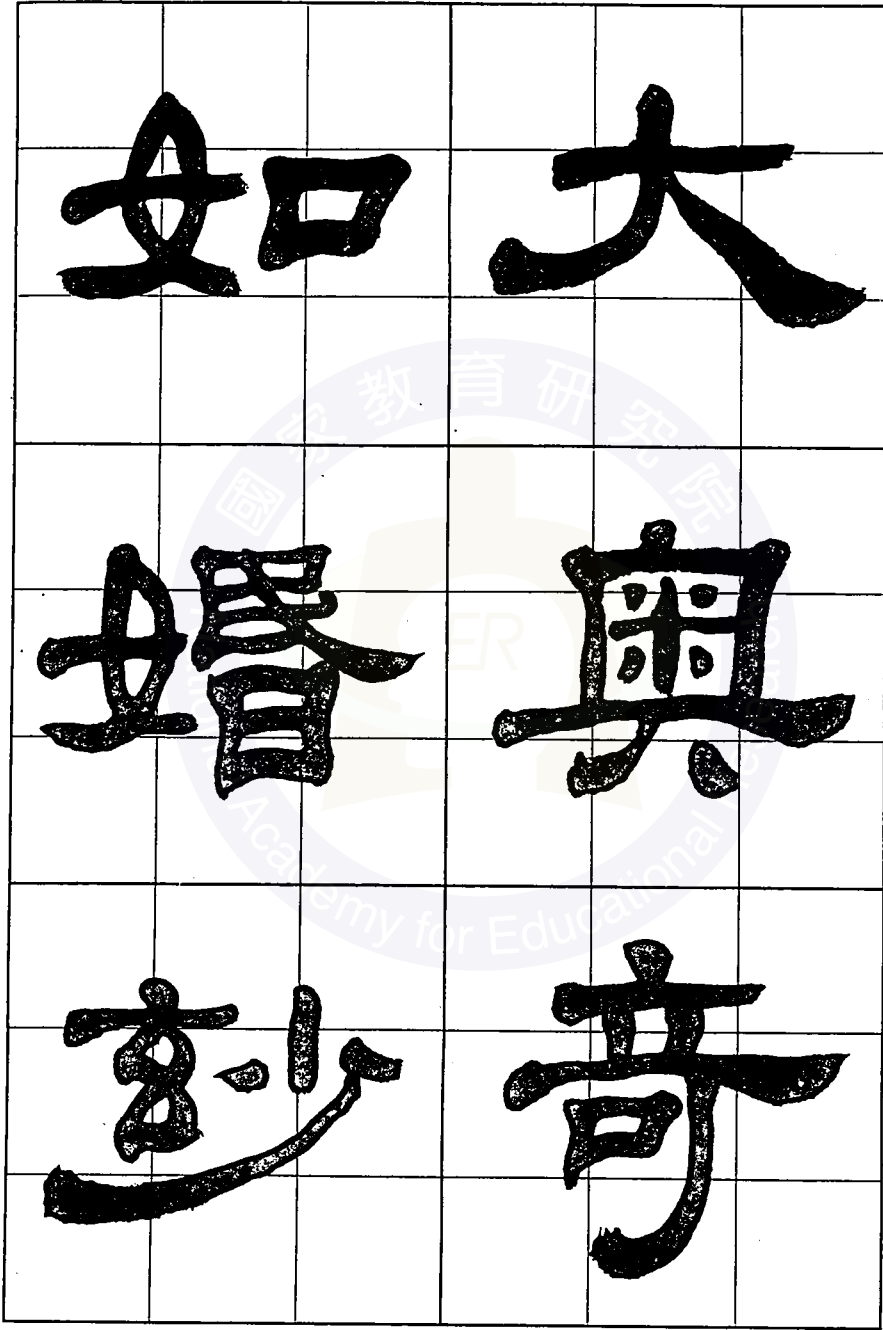 大奧奇
如婚玅
國家教育研究院
National Academy for Educational Research